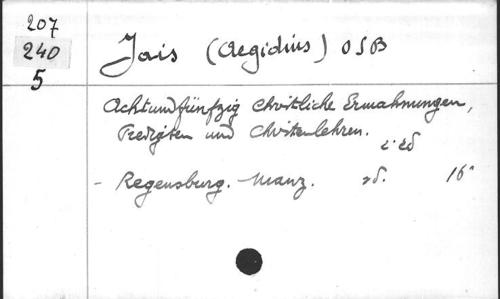 207
240
5
Jais (Aegidius) OSB
Achtundfünfzig christliche Ermahnungen,
Predigten und Christenlehren.
2° éd
- Regensburg. Manz. sd. 16°